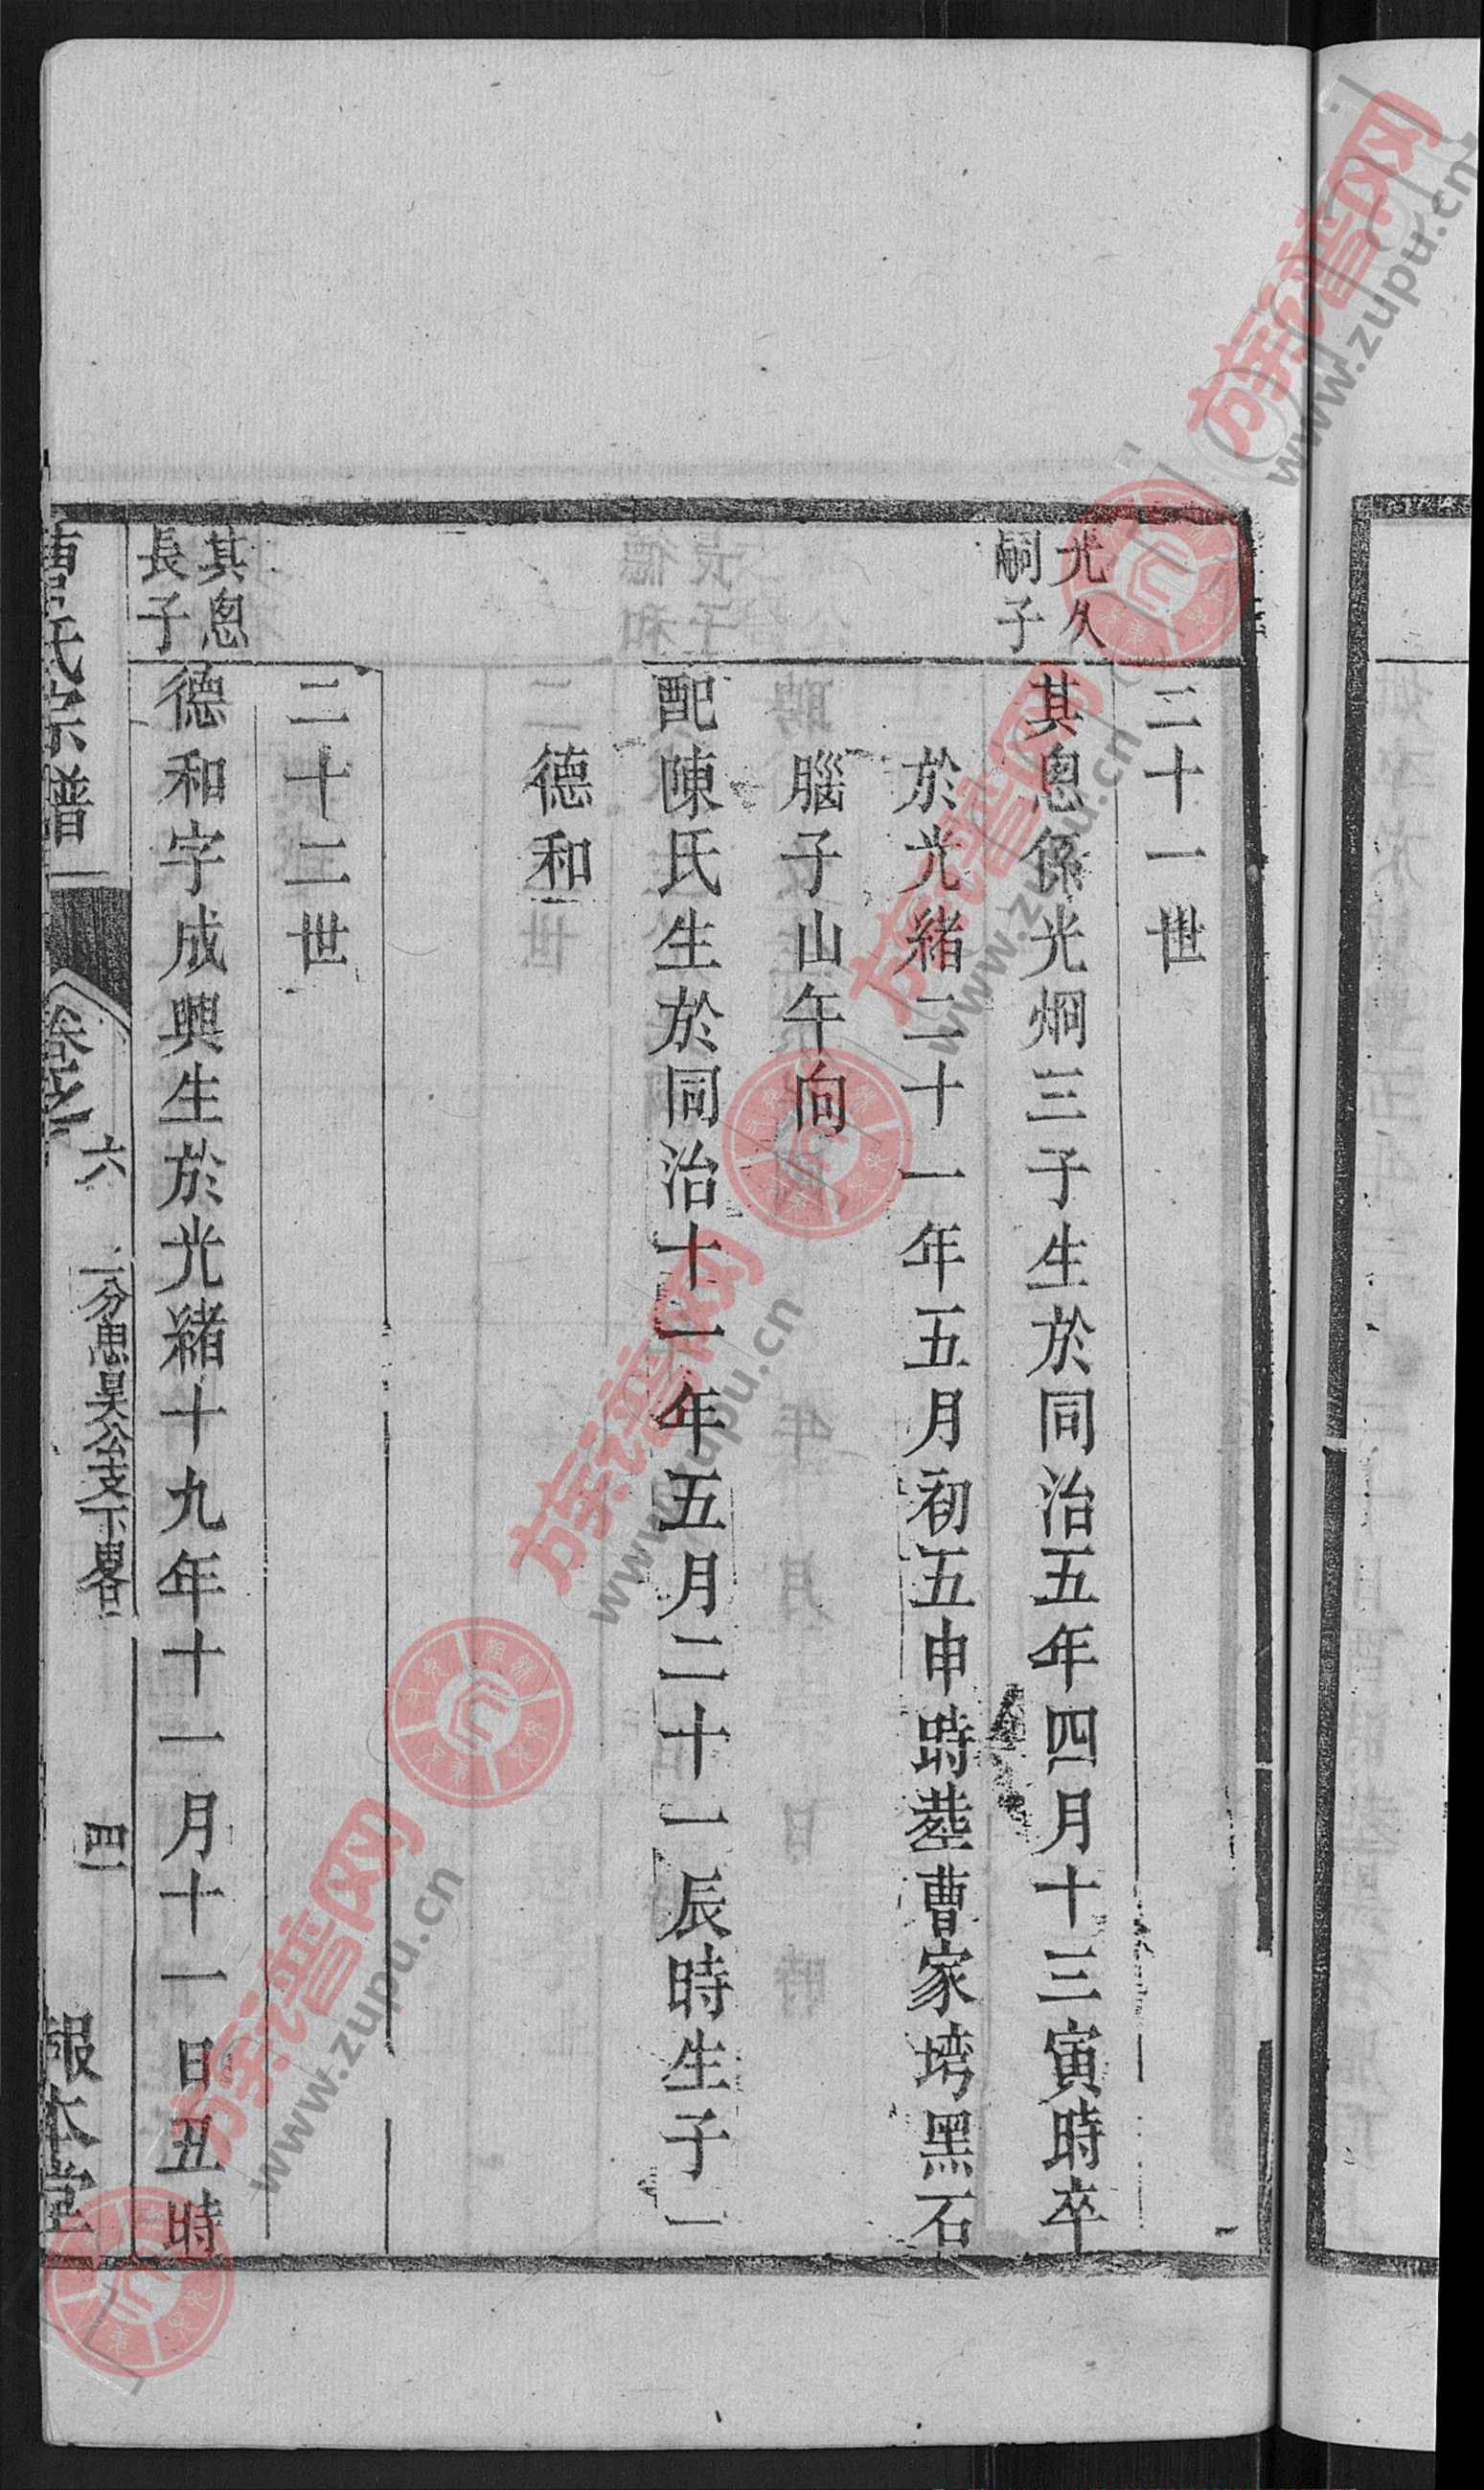 二十一世
光久
嗣子
其恩係光烱三子生於同治五年四月十三寅時卒
於光緒二十一年五月初五申時塟曹家塆黑石
腦子山午向
配陳氏生於同治十一年五月二十一辰時生子一
德和
二十二世
其恩
長子
德和字成興生於光緒十九年十一月十一日丑時
曹氏宗譜
六
二分思昊公支下
四
報本堂
族谱网
www.zupu.cn
族谱网
www.zupu.cn
族谱网
www.zupu.cn
族谱网
www.zupu.cn